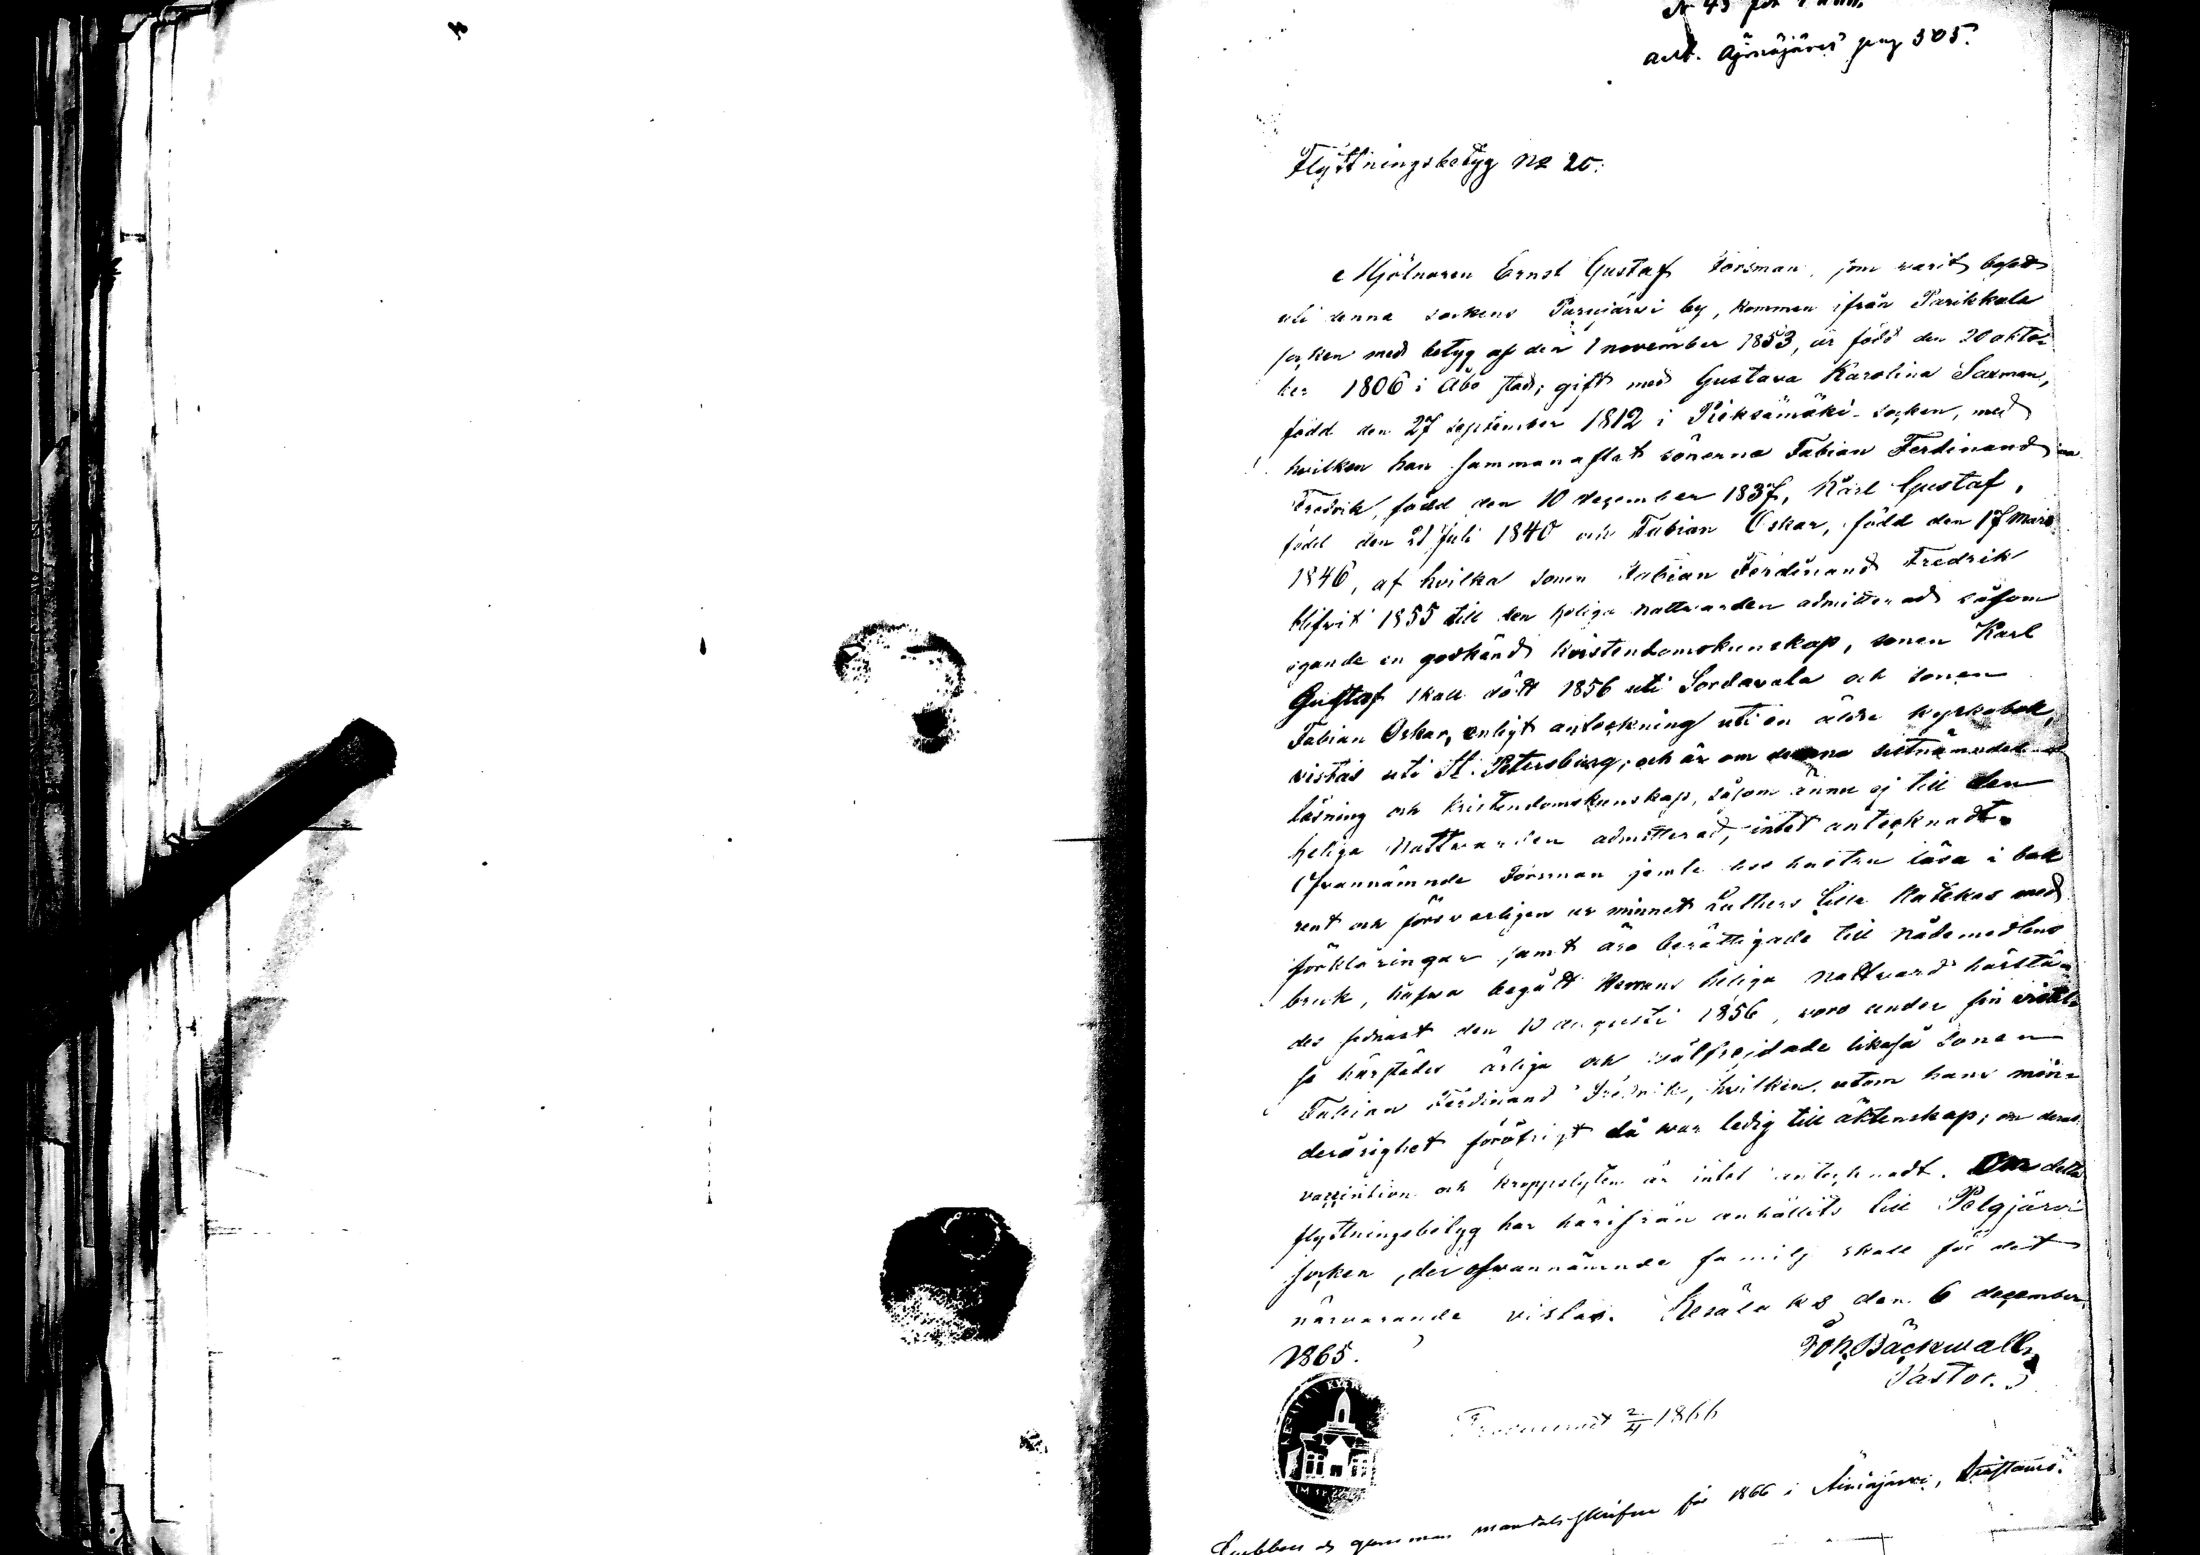 pag 505.
Flyttningsbetyg No 20.
Mjölnaren Ernst Gustaf Forsman, som varit bosatt
uti denna sockens Purujärvi by, kommen ifrån Parikkala
socken med betyg af den 1 november 1853, är född den 20 okto-
ber 1806 i Åbo stad; gift med Gustava Karolina Saxman,
född den 27 september 1812 i Pieksämäki socken, med
hvilken han sammanaflat sönerna Fabian Ferdinand
Fredrik, född den 10 dezember 1837, Karl Gustaf,
född den 21 Juli 1840 och Fabian Oskar, född den 17 Mars
1846, af hvilka sonen Fabian Ferdinand Fredrik
blifvit 1855 till den heliga nattvarden admitterad såsom
egande en godkänd kristendomskunskap, sonen Karl
Gustaf skall dött 1856 uti Sordavala och sonen
Fabian Oskar, enligt anteckning uti en äldre kyrkobok,
vistas uti St. Petersburg; och är om denne sistnämndes
läsning och kristendomskunskap, såsom ännu ej till den
heliga Nattvarden admitterad, intet antecknadt.
Ofvannämnde Forsman jemte hustru läsa i bok
rent och försvarligen ur minnet Luthers Lilla Katekes med
förklaringar samt äro berättigade till nådemedlens
bruk, hafva begått Herrans heliga nattvard härstä-
des sednast den 10 augusti 1856, voro under sin vistel-
se härstädes ärliga och välfrejdade likaså sonen
Fabian Ferdinand Fredrik, hvilken, utom hans min-
derårighet föröfrigt då var ledig till äktenskap; om deras
vaccination och kroppslyten är intet antecknadt. Om detta
flyttningsbetyg har härifrån anhållits till Pelgjärvi
socken, der ofvannämnde familj skall för det
närvarande vistas. Kesälä k s den 6 december
1865.
Joh. Bäckwall,
Pastor.
2/4 1866
mantalsskrifne för 1866 i